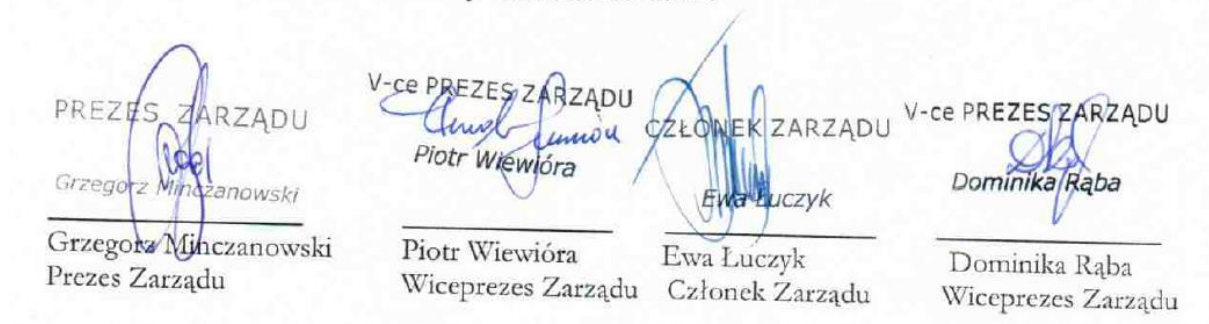 PREZES ZARZĄDU
Grzegorz Minczanowski
Grzegorz Minczanowski
Prezes Zarządu
V-ce PREZES ZARZĄDU
Piotr Wiewióra
Piotr Wiewióra
Wiceprezes Zarządu
CZŁONEK ZARZĄDU
Ewa Łuczyk
Ewa Łuczyk
Członek Zarządu
V-ce PREZES ZARZĄDU
Dominika Rąba
Dominika Rąba
Wiceprezes Zarządu